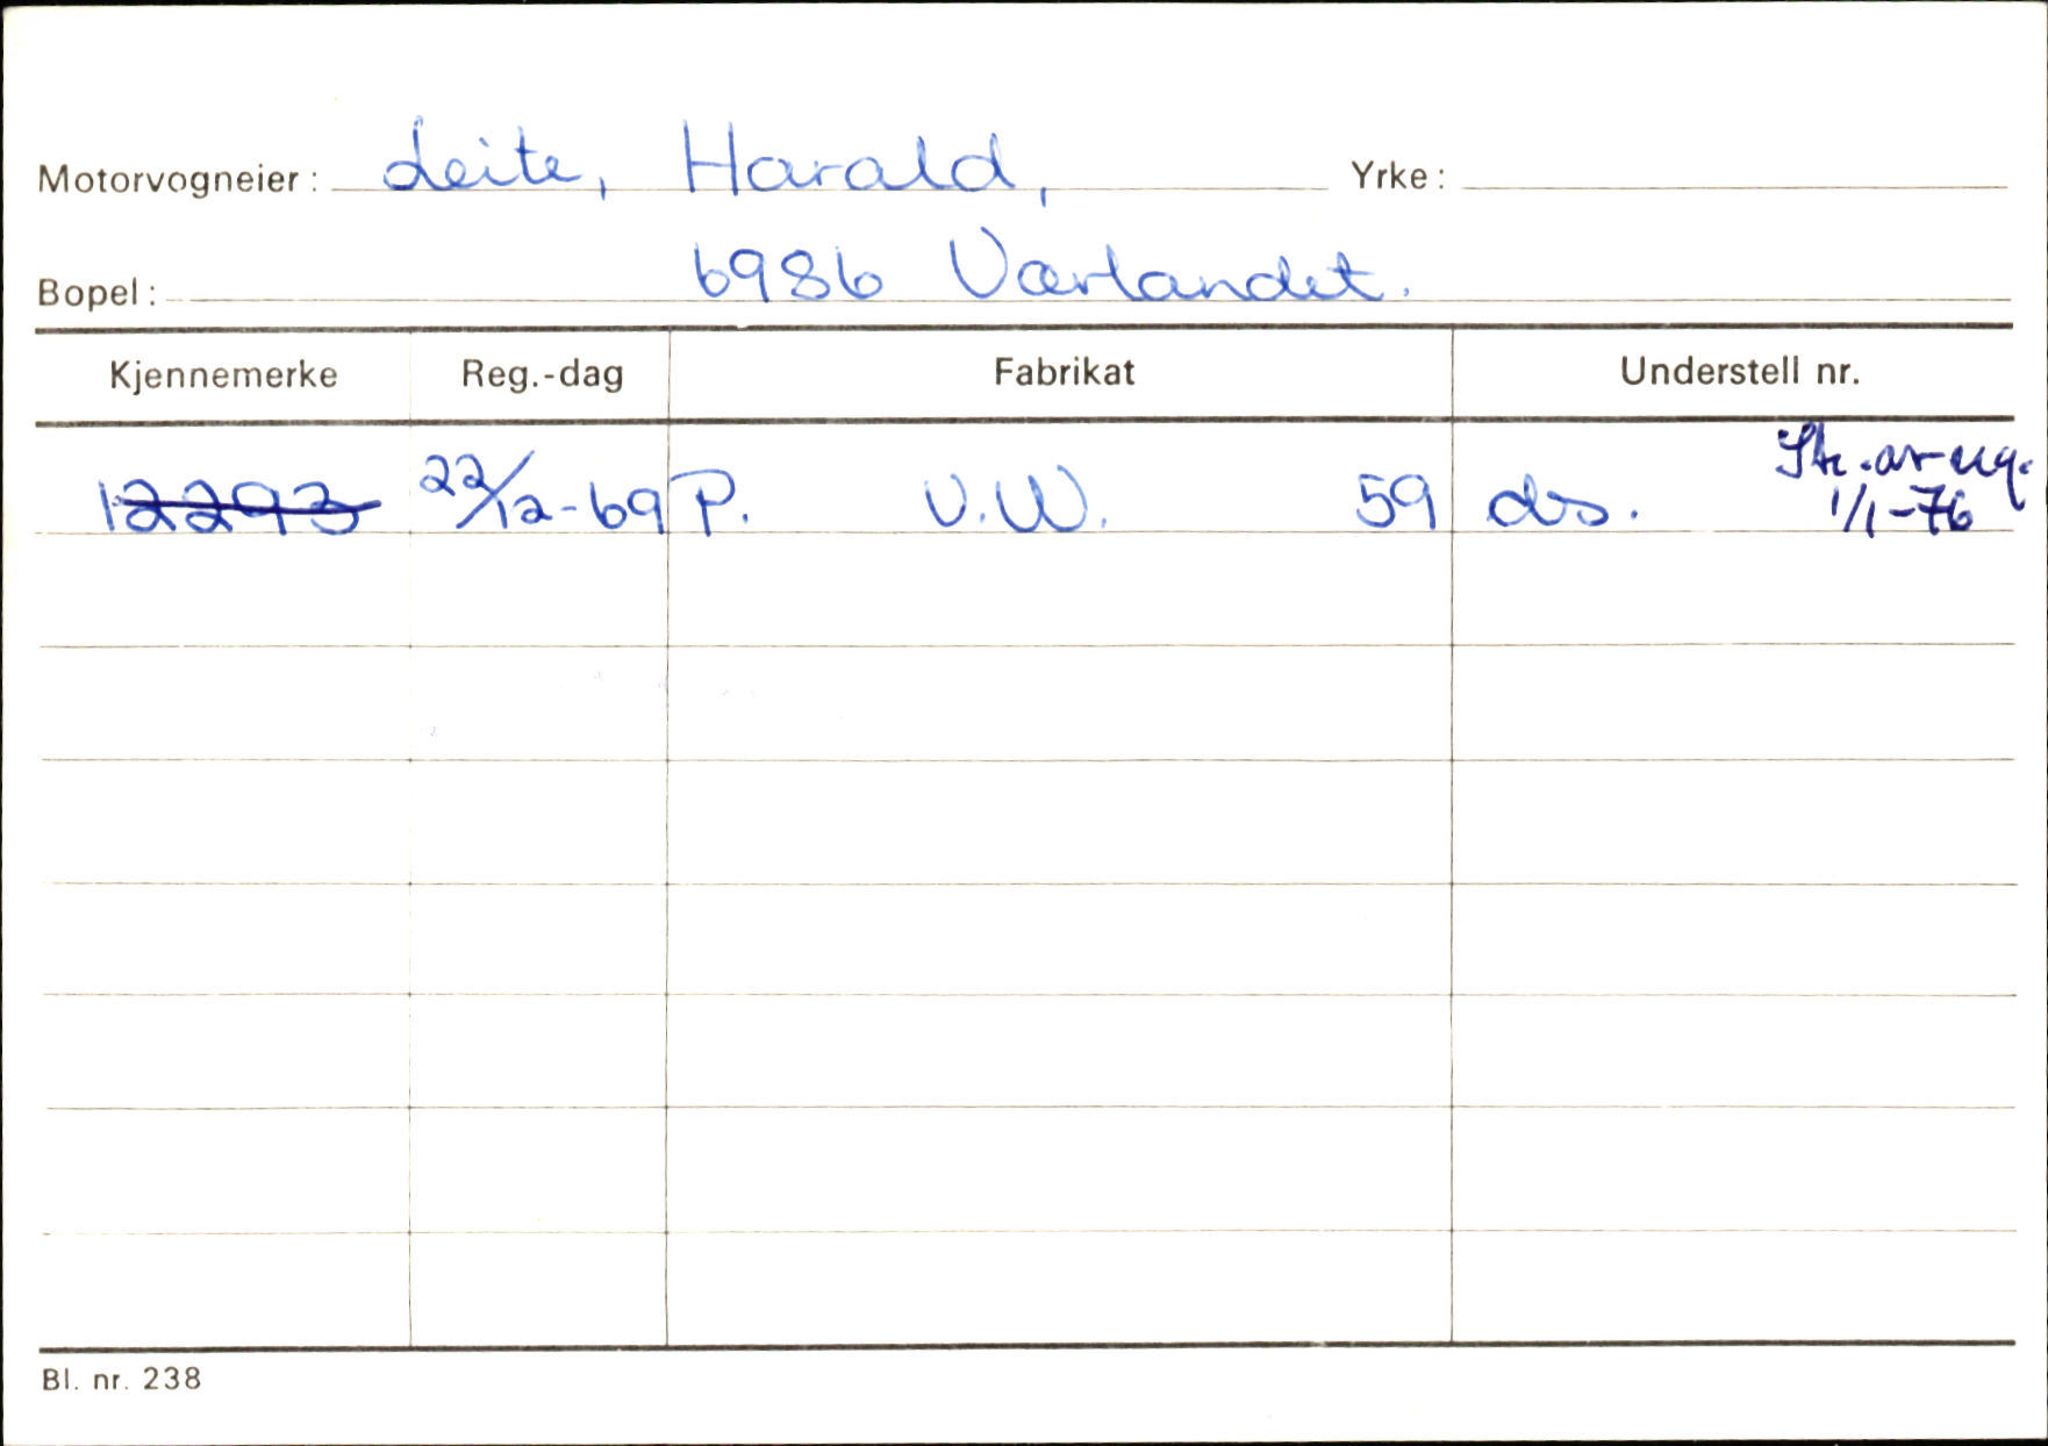 Motorvogneier: Leite, Harald, Yrke:
Bopel: 6986 Værlandet.
Kjennemerke Reg.-dag Fabrikat Understell nr.
12293 22/12-69 P. V.W. 59 ds. Str. av reg.
1/1-76
Bl. nr. 238